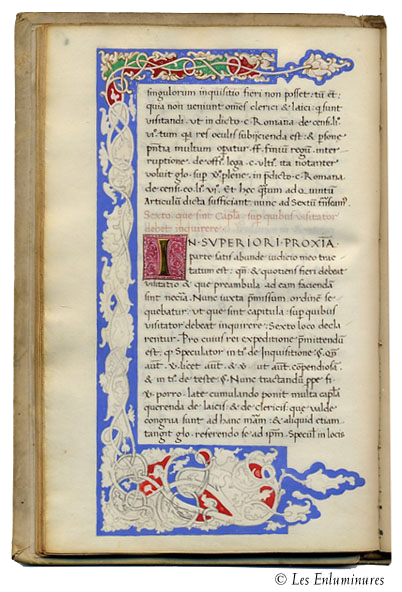 singulorum inquisitio fieri non posset: tũ et
quia non veniunt om̃es clerici & laici: q̃ sunt
visitandi. ut in dicto. c. Romana. de censi. li.
vi. tum quia res oculis subijcienda est: & p̃sone
p̃ntia multum operatur. ff. finiũ regũ. inter-
ruptione. de offi. lega. c. ulti. ita notanter
voluit glo. sup. x. plene. in p̃dicto. c. Romana.
de censi. eo. li. vi. Et hec q̃tum ad Quintũ
Articulũ dicta sufficiant. nunc ad Sextũ
Sexto. que sint Capl̃a. sup quibus visitator
debet inquirere
IN SVPERIORI PROXIA
parte satis abunde iudicio meo trac
tatum est: qñ & quotiens fieri debeat
visitatio & que preambula ad eam facienda
sint neccĩa. Nunc iuxta p̃missum ordinẽ se-
quebatur. ut que sint capitula. sup quibus
visitator debeat inquirere: Sexto loco decla
rentur. Pro cuius rei expeditione p̃mittendũ
est. q̃ Speculator in ti. de Inquisitione. §. Qñ
aũt. x. licet aũt. & x. ut aũt. copendiosa.
& in ti. de teste. §. Nunc tractandũ.
x. porro. late cumulando ponit multa capl̃a
querenda de laicis: & de clericis. que valde
congrua sunt ad hanc mãm: & aliquid etiam
tangit glo. referendo se ad ip̃m Specul̃. in locis
© Les Enluminures